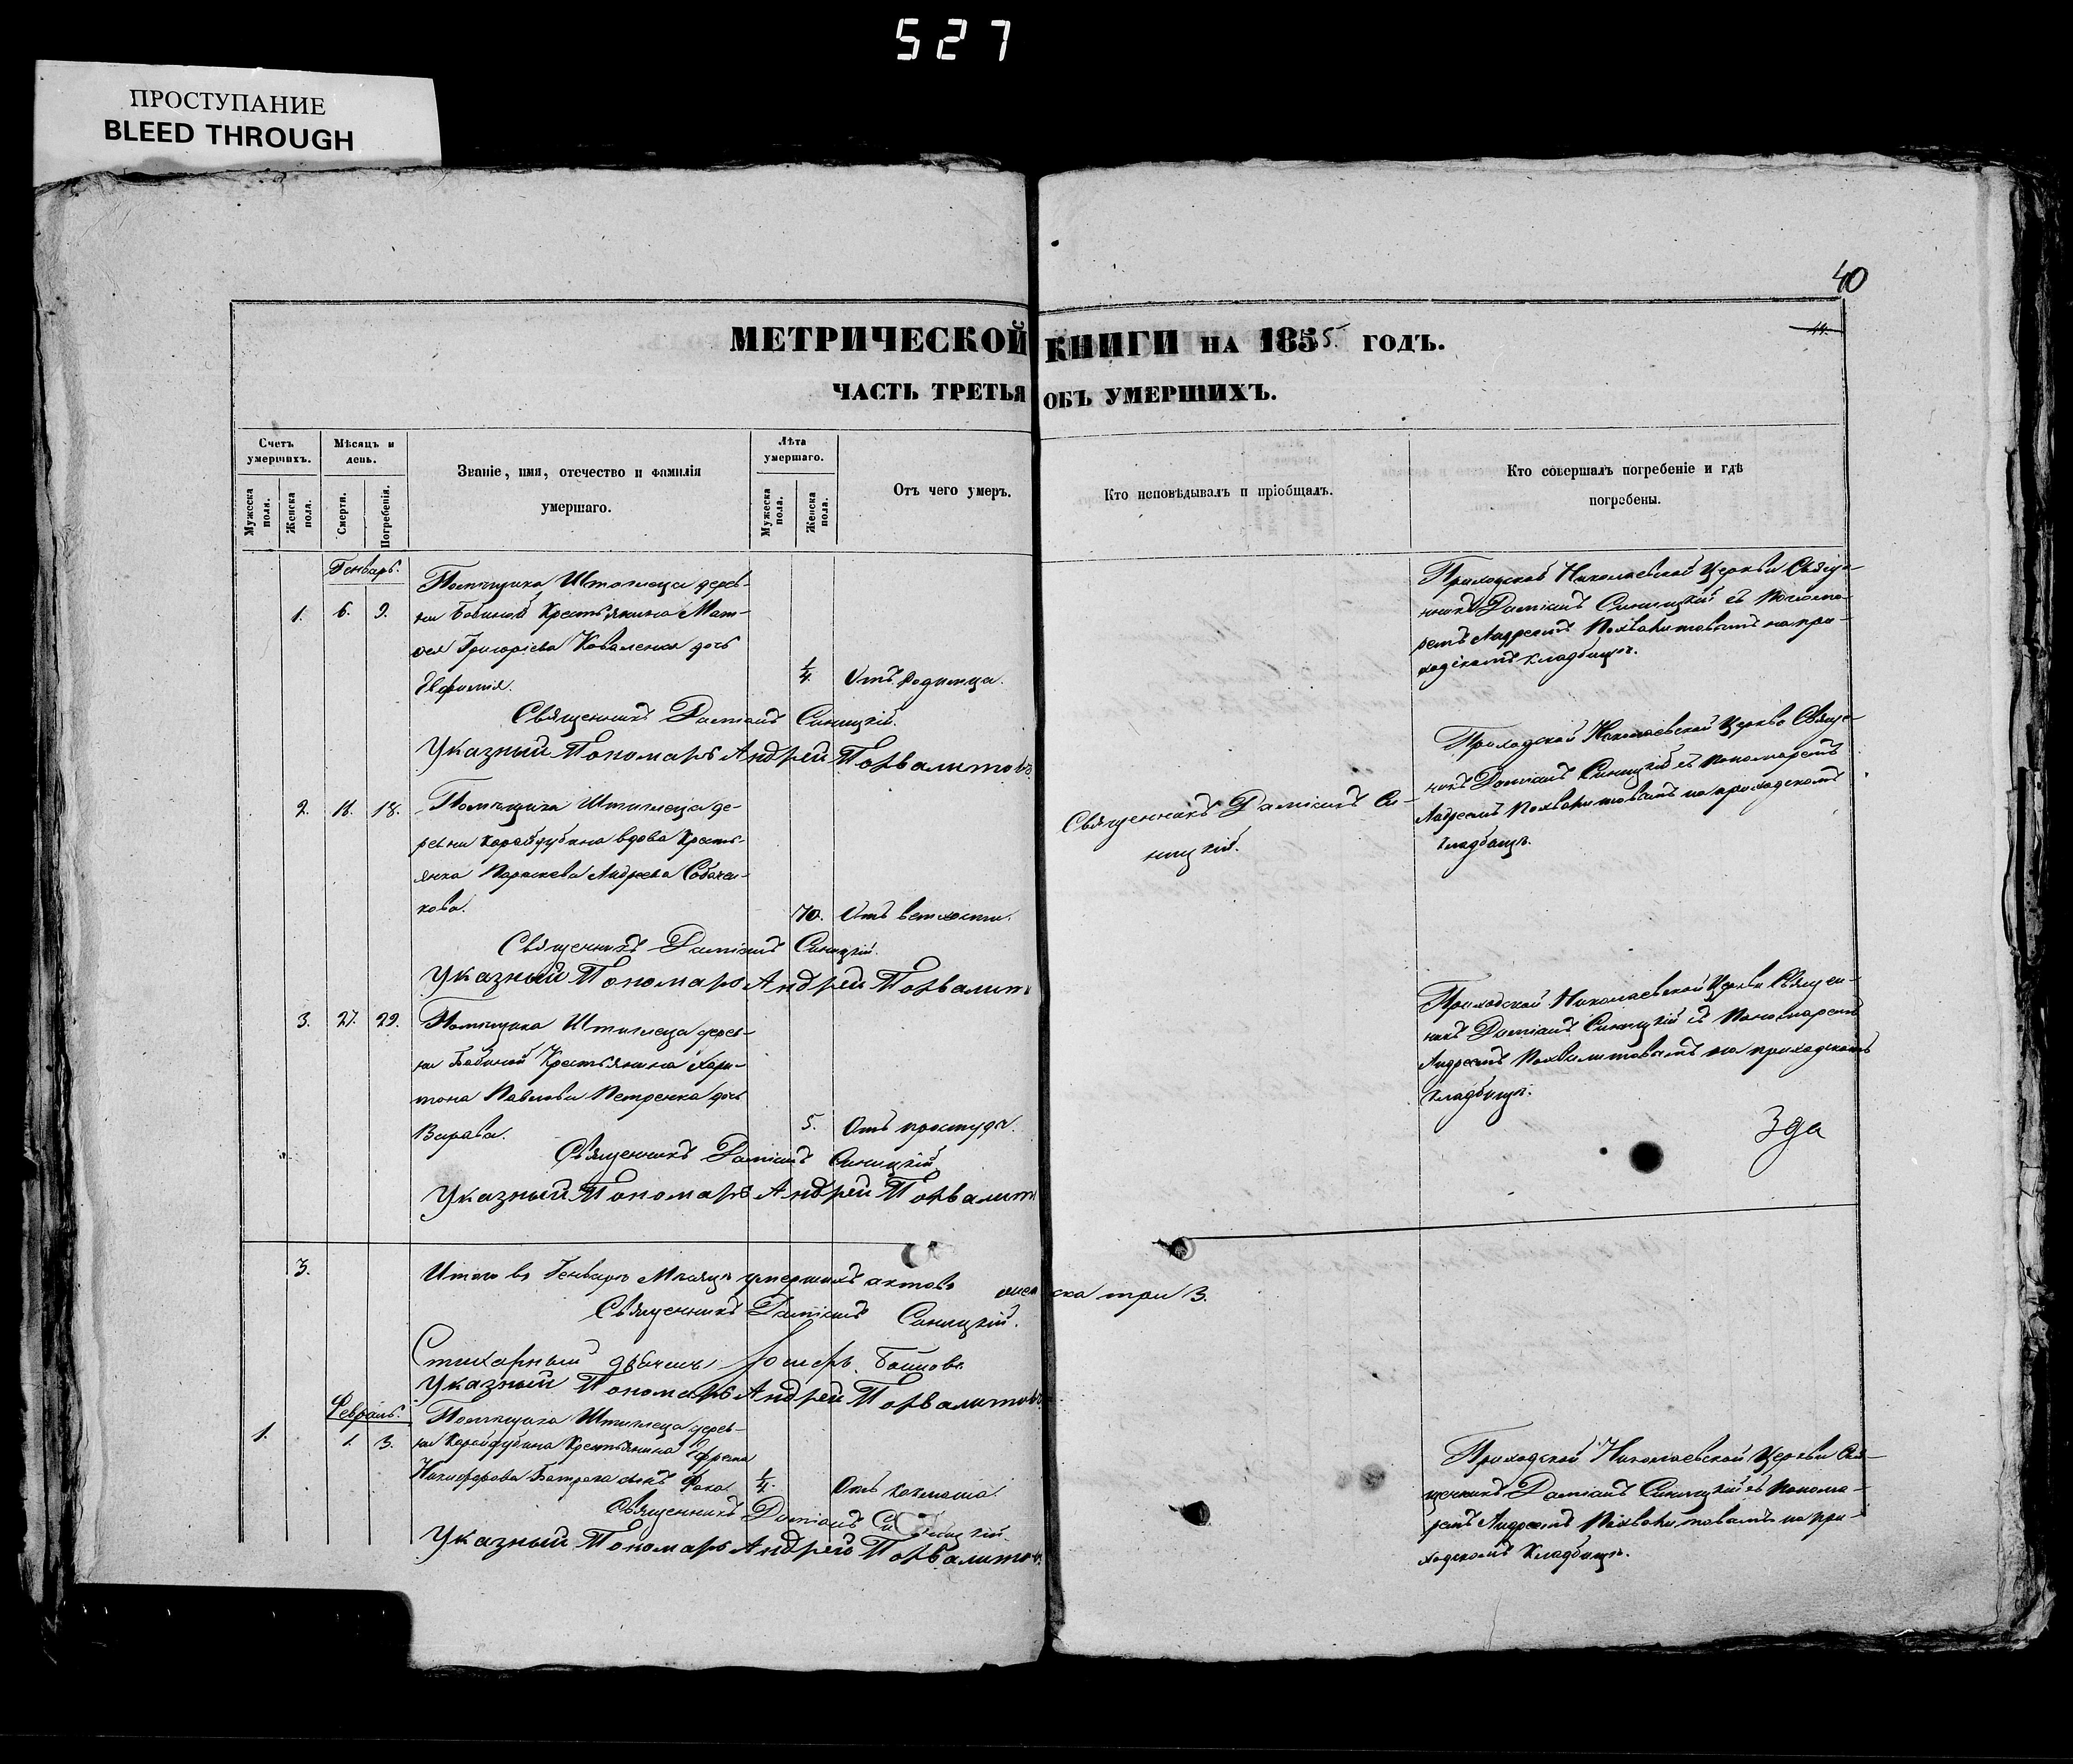 527
ПРОСТУПАНИЕ
BLEED THROUGH
40
МЕТРИЧЕСКОЙ КНИГИ НА 1855. ГОДЪ.
ЧАСТЬ ТРЕТЬЯ ОБЪ УМЕРШИХЪ.
Счетъ умершихъ.
Мужеска пола.
Женска пола.
Мѣсяцъ и день.
Смерти.
Погребенія.
Званіе, имя, отечество и фамилія
умершаго.
Лѣта умершаго.
Мужеска пола.
Женска пола.
Отъ чего умеръ.
Кто исповѣдывалъ и пріобщалъ.
Кто совершалъ погребеніе и гдѣ
погребены.
Генварь.
1. 6. 9.
Помѣщика Штиглеца дерев-
ни Бабиной Крестьянина Мат-
фея Григоріева Коваленка дочь
Евфимія.
1/4. Отъ родимца.
Священникъ Даміанъ Синицкій.
Указный Пономарь Андрей Похвалитовъ.
Приходской Николаевской Церкви Свяще-
нникъ Даміанъ Синицкій съ Понома-
ремъ Андреемъ Похвалитовымъ на при-
ходскомъ кладбищѣ.
2. 18.
Помѣщика Штиглеца де-
ревни Карайдубина вдова Кресть-
янка Параскева Андреева Собачен-
кова.
70. Отъ ветхости.
Священникъ Даміанъ Синицкій.
Указный Пономарь Андрей Похвалит
Священникъ Даміанъ Си-
ницкій.
Приходской Николаевской Церкви Свяще-
никъ Даміанъ Синицкій съ Пономаремъ
Андреемъ Похвалитовымъ на приходскомъ
кладбищѣ.
3. 27. 29.
Помѣщика Штиглеца дерев-
ни Бабиной Крестьянина Хари-
тона Павлова Петренка дочь
Варвара.
5. Отъ простуды.
Священникъ Даміанъ Синицкій
Указный Пономарь Андрей Похвалит
Приходской Николаевской Церкви Священ-
никъ Даміанъ Синицкій съ Пономаремъ
Андреемъ Похвалитовымъ на приходскомъ
кладбищѣ.
3.
Итого въ Генварѣ Мѣсяцѣ умершихъ актовъ женска три 3.
Священникъ Даміанъ Синицкій.
Стихарный дьячекъ
Указный Пономарь Андрей Похвалитовъ
Февраль.
1. 1. 3.
Помѣщика Штиглеца дерев-
ни Карайдубина Крестьянина Ефрема
Никифорова сынъ Фока
1/4. Отъ
Священникъ Даміанъ Синицкій.
Указный Пономарь Андрей Похвалитовъ.
Приходской Николаевской Церкви Свя-
щенникъ Даміанъ Синицкій съ Понома-
ремъ Андреемъ Похвалитовымъ на при-
ходскомъ Кладбищѣ.